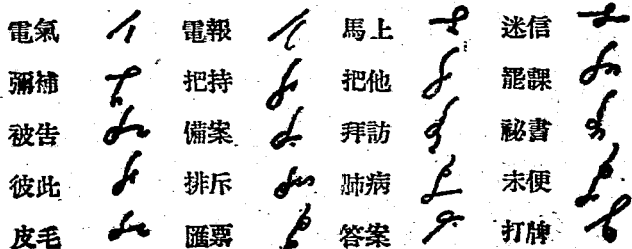 電氣 電報 馬上 迷信
彌補 把持 把他 罷課
被告 備案 拜訪 祕書
彼此 排斥 肺病 未便
皮毛 匯票 答案 打牌